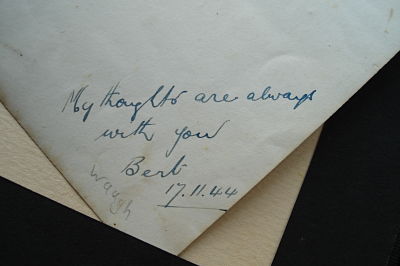 My thoughts are always
with you
Bert
17.11.44
Waugh